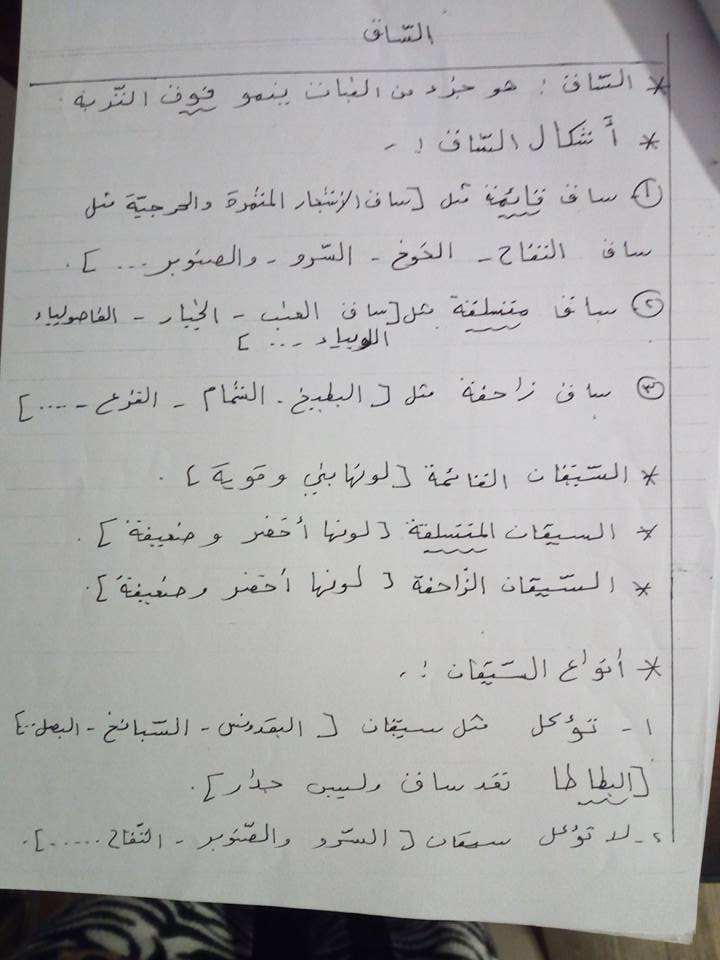 السّاق
* السّاق : هو جزء من النبات ينمو فوق التّربة .
* أشكال السّاق : -
١ ساق قائمة مثل [ساق الأشجار المثمرة والحرجيّة مثل
ساق التفاح - الخوخ - السّرو - والصنوبر ... ].
٢ ساق متسلقة مثل [ساق العنب - الخيار - الفاصولياء
اللوبياء ... ]
٣ ساق زاحفة مثل [ البطيخ - الشمام - القرع - .... ]
* السّيقان القائمة [لونها بني وقوية ] .
* السيقان المتسلقة [ لونها أخضر وضعيفة ] .
* السّيقان الزّاحفة [ لونها أخضر وضعيفة ].
* أنواع السّيقان : -
١ - تؤكل مثل سيقان [ البقدونس - السّبانخ - البصل ..]
[البطاطا تعد ساق وليس جذار ].
٢ - لا تؤكل سيقان [ السّرو والصّنوبر - التّفاح ..... ].